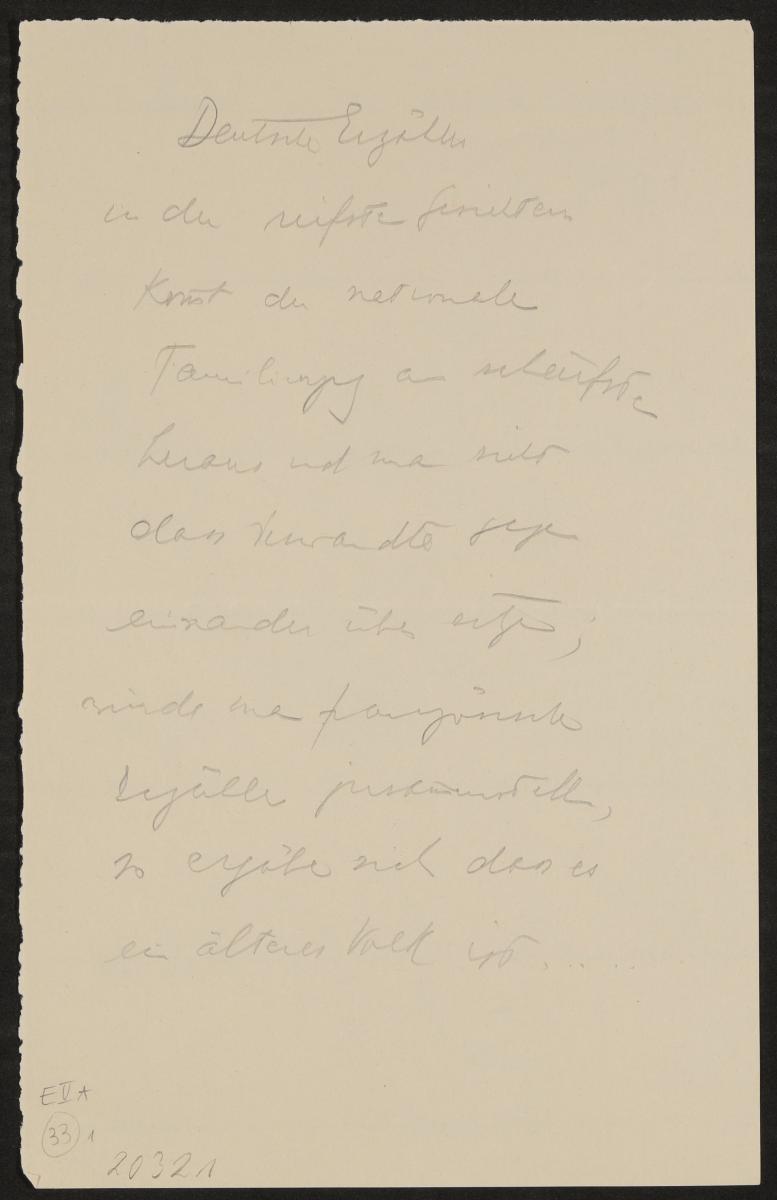 Deutsche Erzähler
in der reifste
Kunst der nationale
Familienzug am schärfste
heraus und man sieht
dass Verwandte gegen
einander über sitzen;
würde man französische
Erzähler zusammenstellen,
so ergäbe sich dass es
ein älteres Volk ist.....
E V A
33 1
20321